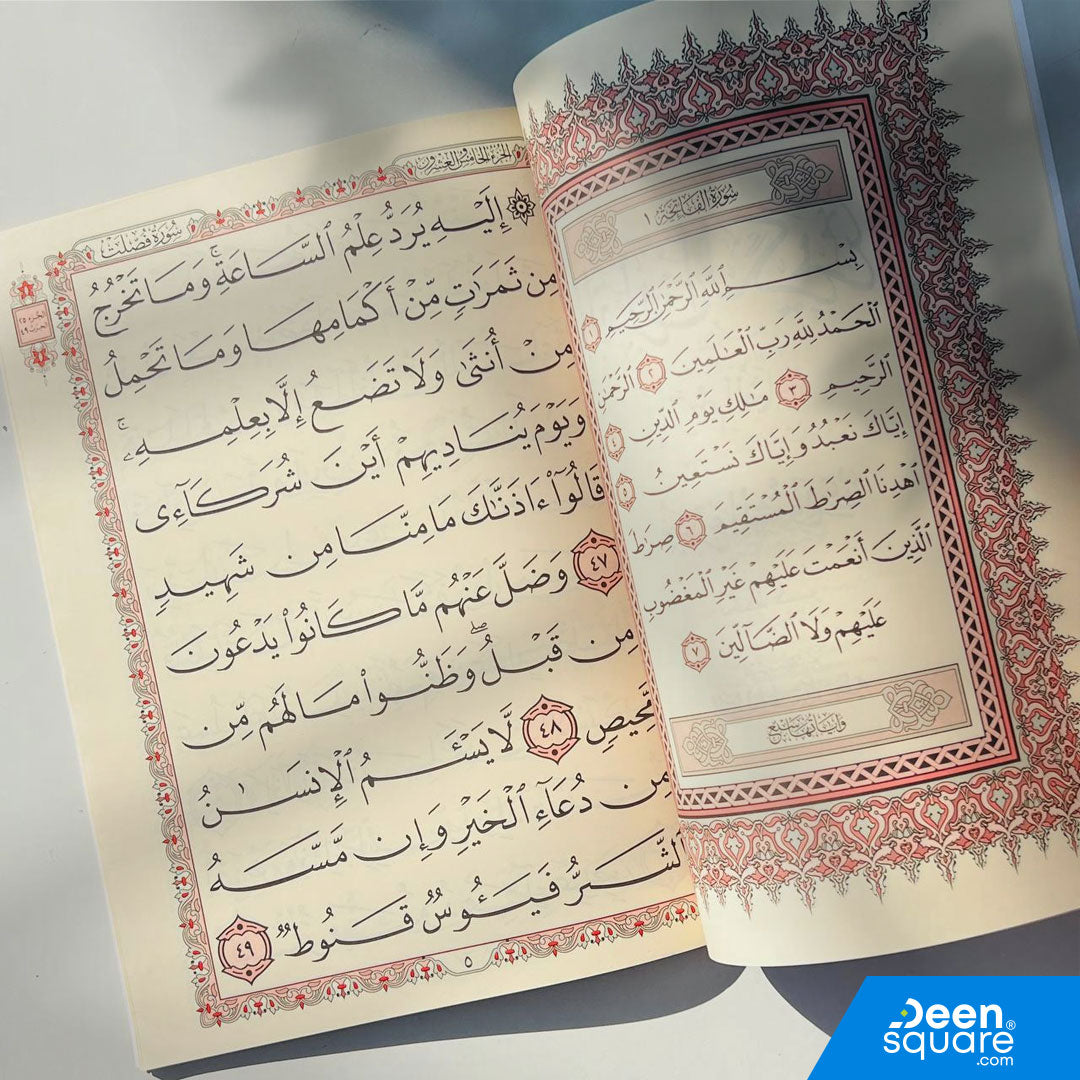 سُورَةُ الفَاتِحَة ١
بِسْمِ ٱللَّهِ ٱلرَّحْمَٰنِ ٱلرَّحِيمِ ١
ٱلْحَمْدُ لِلَّهِ رَبِّ ٱلْعَٰلَمِينَ ٢ ٱلرَّحْمَٰنِ
ٱلرَّحِيمِ ٣ مَٰلِكِ يَوْمِ ٱلدِّينِ ٤
إِيَّاكَ نَعْبُدُ وَإِيَّاكَ نَسْتَعِينُ ٥
ٱهْدِنَا ٱلصِّرَٰطَ ٱلْمُسْتَقِيمَ ٦ صِرَٰطَ
ٱلَّذِينَ أَنْعَمْتَ عَلَيْهِمْ غَيْرِ ٱلْمَغْضُوبِ
عَلَيْهِمْ وَلَا ٱلضَّآلِّينَ ٧
الجزء الخامس والعشرون
سُورَةُ فُصِّلَت
الجزء ٢٥
الحزب ٤٩
۞ إِلَيْهِ يُرَدُّ عِلْمُ ٱلسَّاعَةِ ۚ وَمَا تَخْرُجُ
مِن ثَمَرَٰتٍ مِّنْ أَكْمَامِهَا وَمَا تَحْمِلُ
مِنْ أُنثَىٰ وَلَا تَضَعُ إِلَّا بِعِلْمِهِۦ ۚ
وَيَوْمَ يُنَادِيهِمْ أَيْنَ شُرَكَآءِى
قَالُوٓا۟ ءَاذَنَّٰكَ مَا مِنَّا مِن شَهِيدٍ
٤٧ وَضَلَّ عَنْهُم مَّا كَانُوا۟ يَدْعُونَ
مِن قَبْلُ ۖ وَظَنُّوا۟ مَا لَهُم مِّن
مَّحِيصٍ ٤٨ لَّا يَسْـَٔمُ ٱلْإِنسَٰنُ
مِن دُعَآءِ ٱلْخَيْرِ وَإِن مَّسَّهُ
ٱلشَّرُّ فَيَـُٔوسٌ قَنُوطٌ ٤٩
٥
Deen®
square
.com